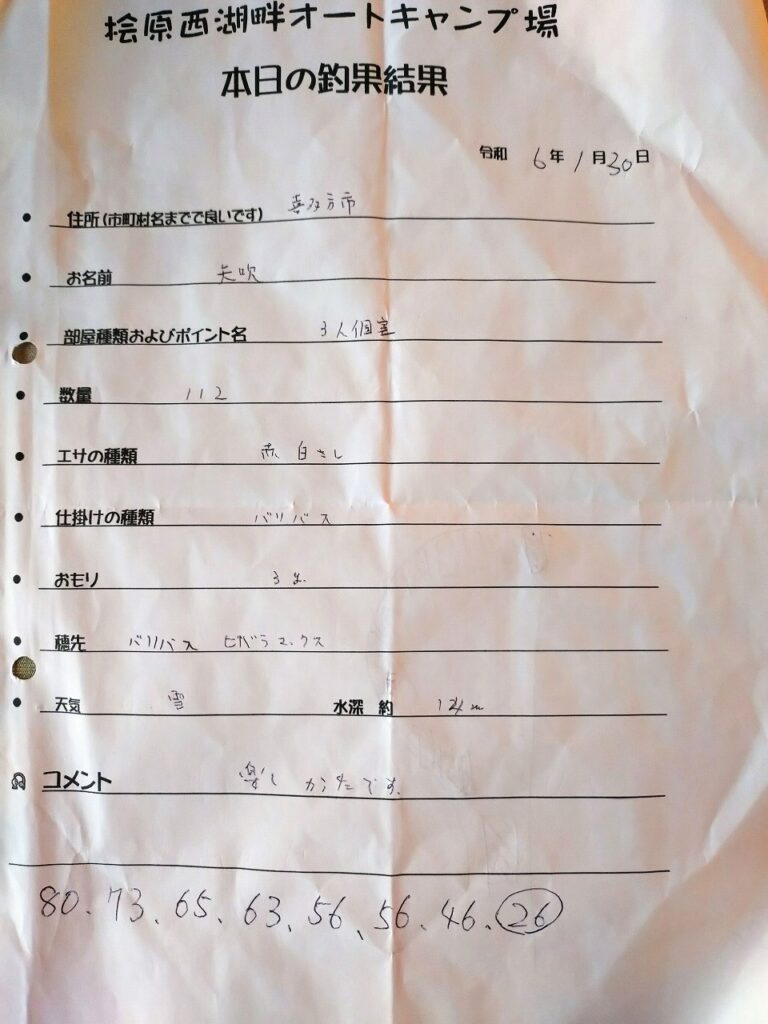 桧原西湖畔オートキャンプ場
本日の釣果結果
令和 6年 1月30日
住所(市町村名までで良いです) 喜多方市
お名前 矢吹
部屋種類およびポイント名 3人個室
数量 112
エサの種類 赤 白さし
仕掛けの種類 バリバス
おもり 3
穂先 バリバス ワカサギマックス
天気 雪 水深 約 12m
コメント 楽しかったです。
80、73、65、63、56、56、46、26